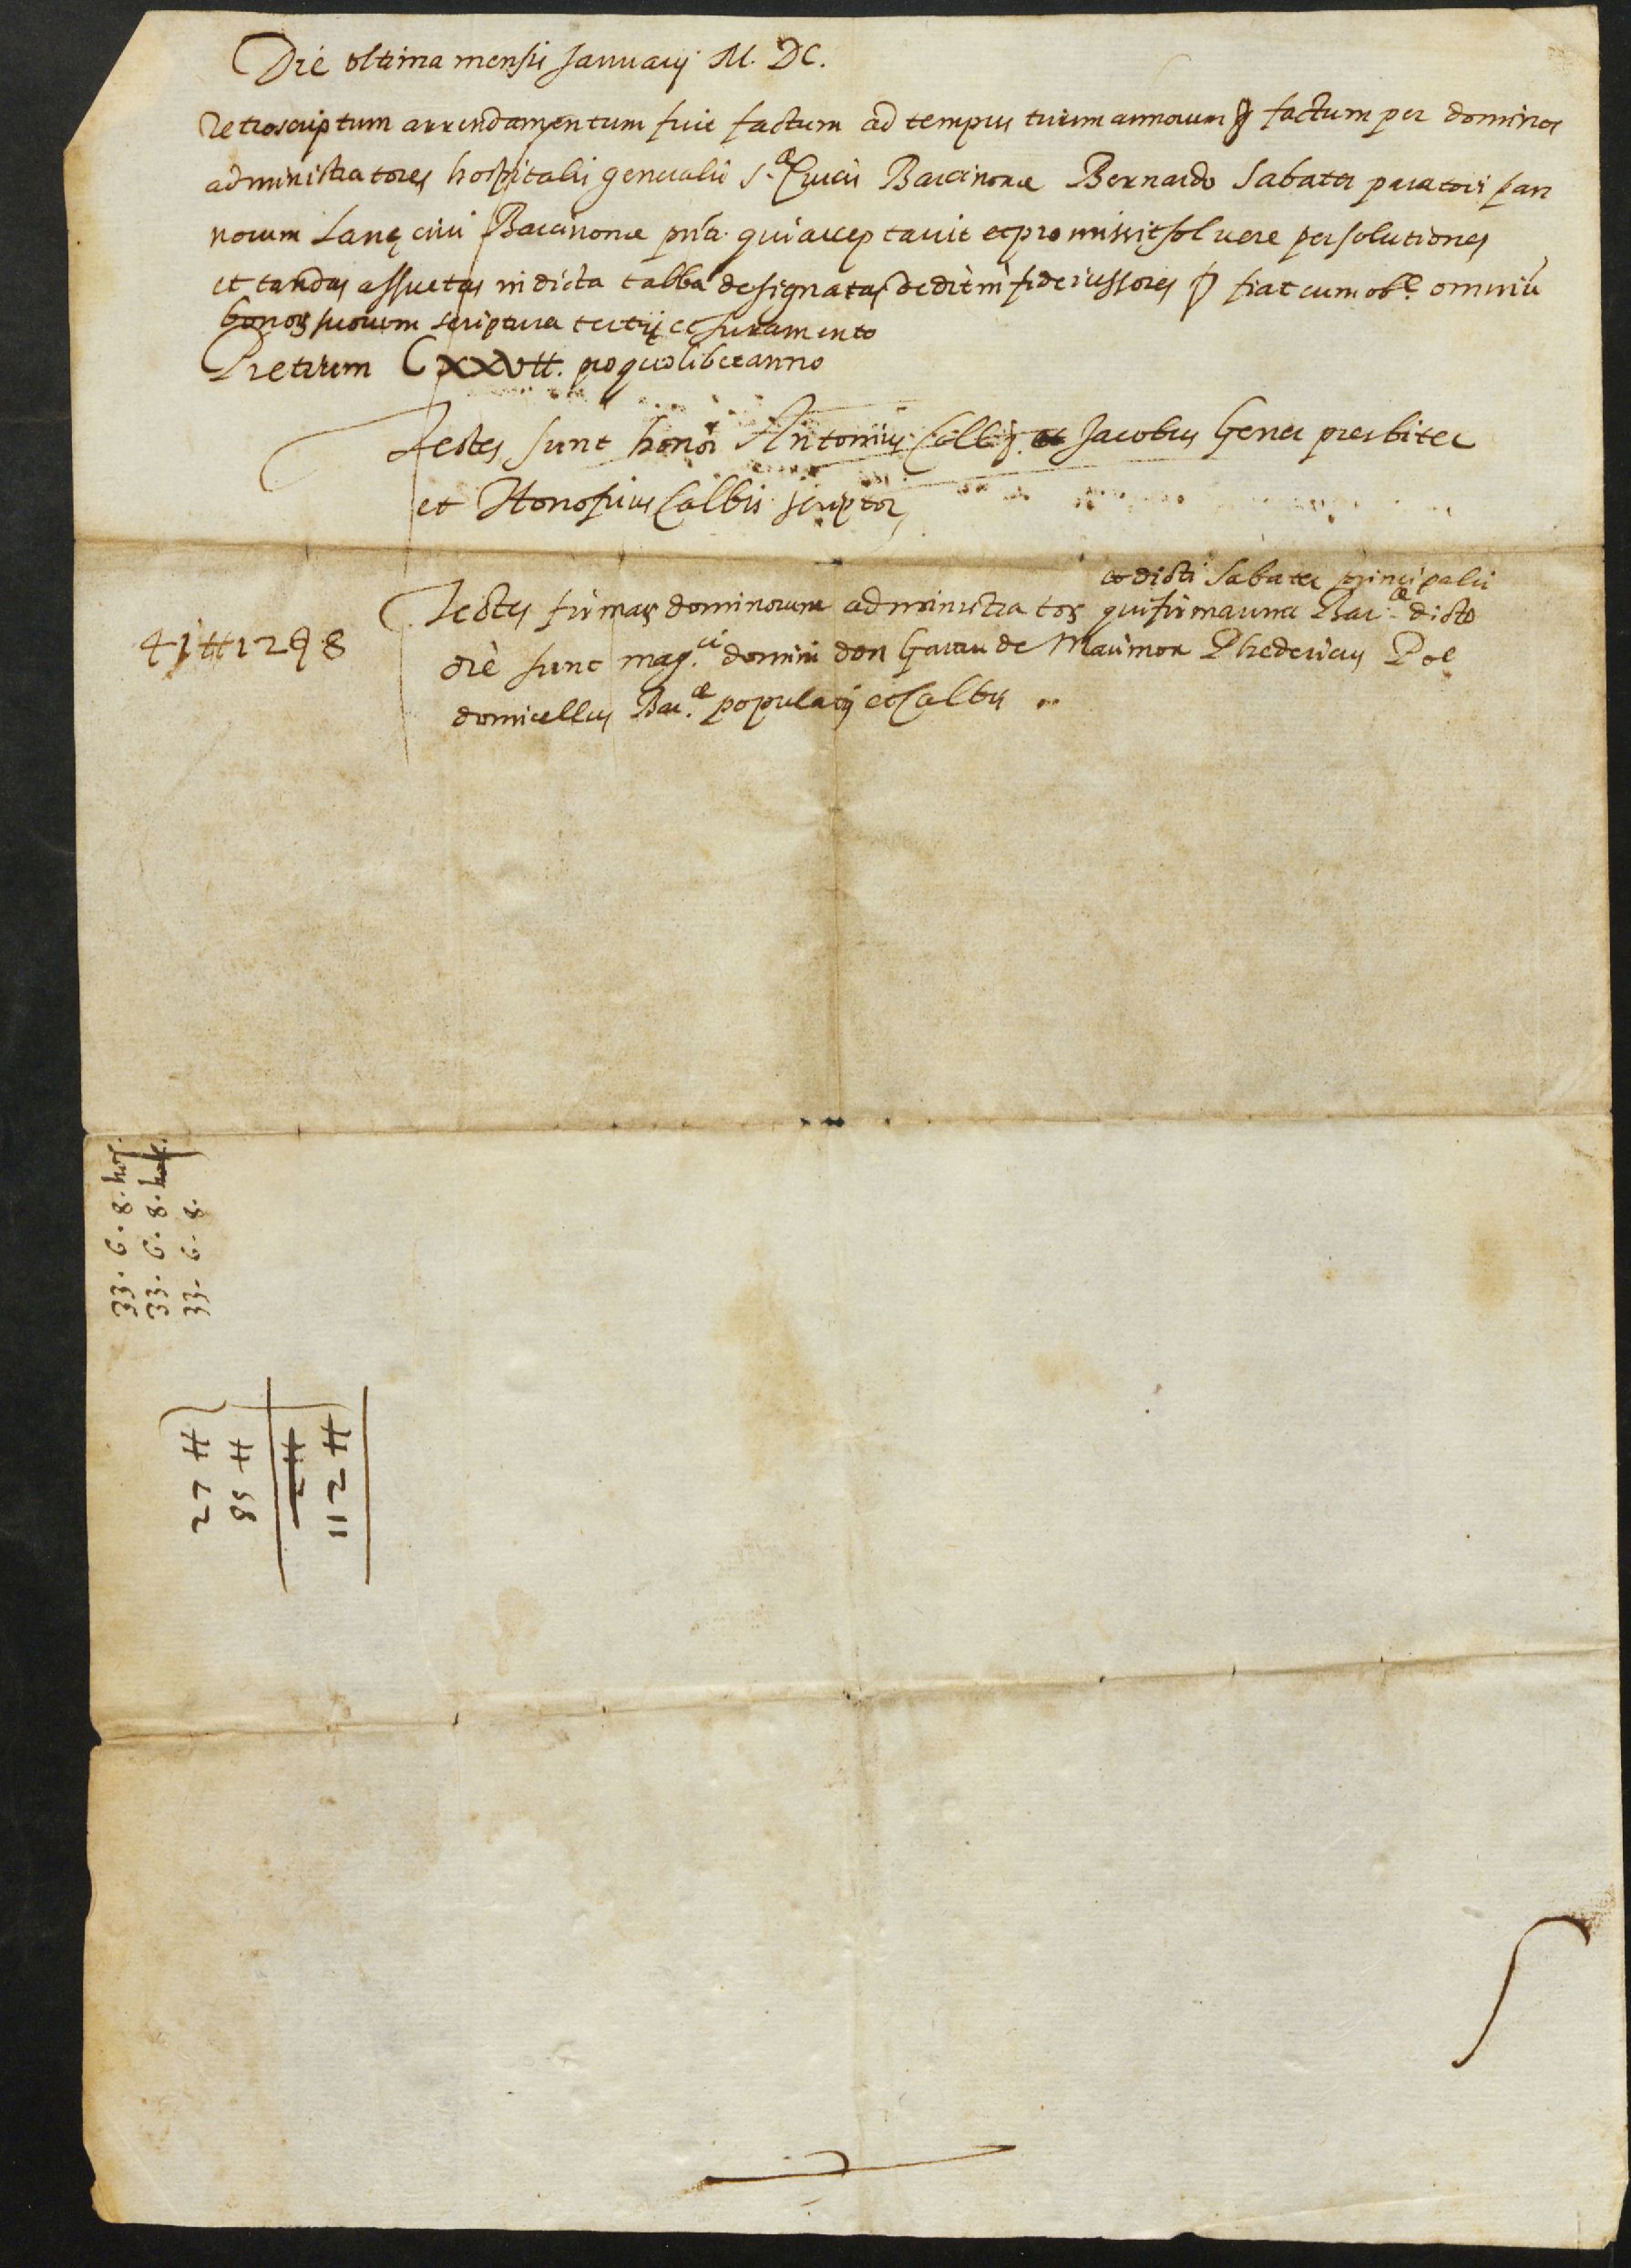 Die vltima mensis Januarij M. DC.
Retroscriptum arrendamentum fuit factum ad tempus trium annorum factum per dominos
administratores hospitalis generalis S.æ Crucis Barcinonæ Bernardo Sabater paratori pan
norum Lanę ciui Barcinonæ pnti. qui acceptauit et promissit soluere per solutiones
et tandas assuetas in dicta tabba designatas dedit in fideiussores fiat cum obe. omniũ
bonoꝝ suorum scriptura tertij et Juramento
Pretium CXXV ₶. pro quolibet anno
Testes sunt honor Antonius Calbis Jacobus Gener presbiter
et Honofrius Calbis scriptor
et dicti Sabater principalis
Testes firmaꝝ dominorum administratoꝝ qui firmarunt Bar.æ dicto
41 ₶ 12 ẞ 8
die sunt mag.ci domini don Garau de Marimon Phedericus Pol
domicellus Bar.æ populatij et Calbis
33. 6. 8. hos.
33. 6. 8. hos.
33. 6. 8.
27 ₶
85 ₶
2 ₶
112 ₶